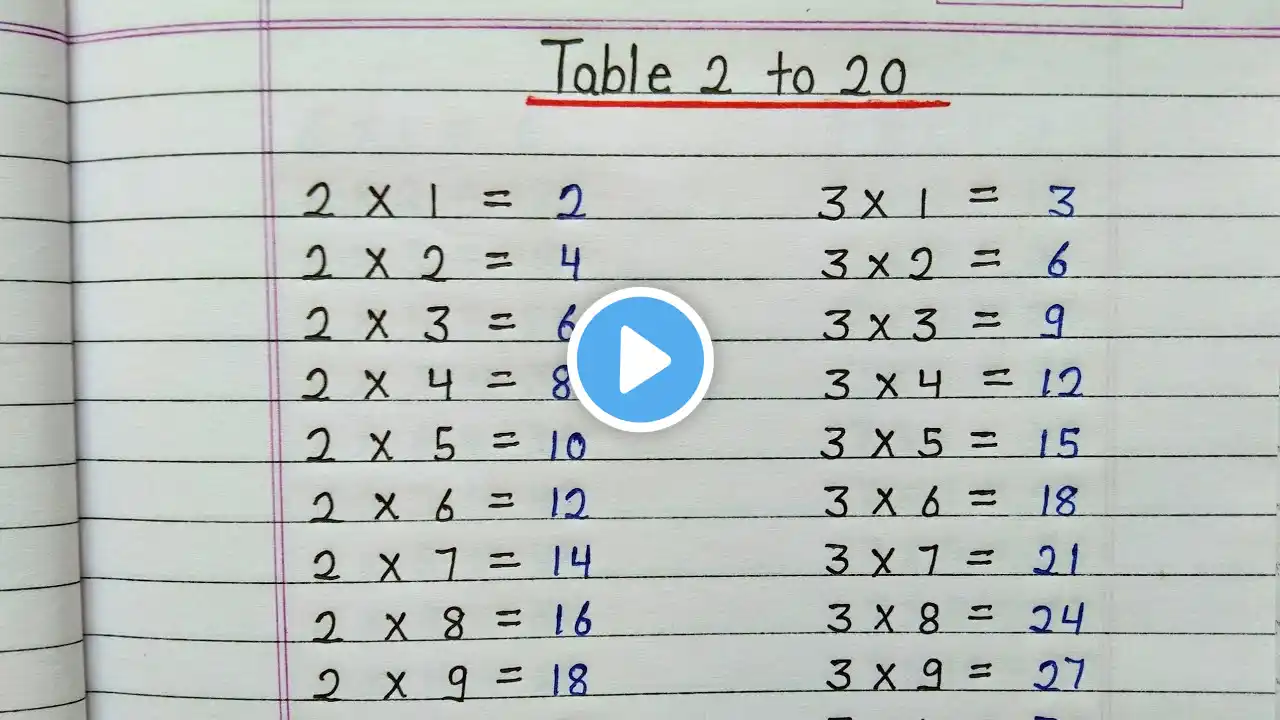 Table 2 to 20
2 x 1 = 2 3 x 1 = 3
2 x 2 = 4 3 x 2 = 6
2 x 3 = 6 3 x 3 = 9
2 x 4 = 8 3 x 4 = 12
2 x 5 = 10 3 x 5 = 15
2 x 6 = 12 3 x 6 = 18
2 x 7 = 14 3 x 7 = 21
2 x 8 = 16 3 x 8 = 24
2 x 9 = 18 3 x 9 = 27